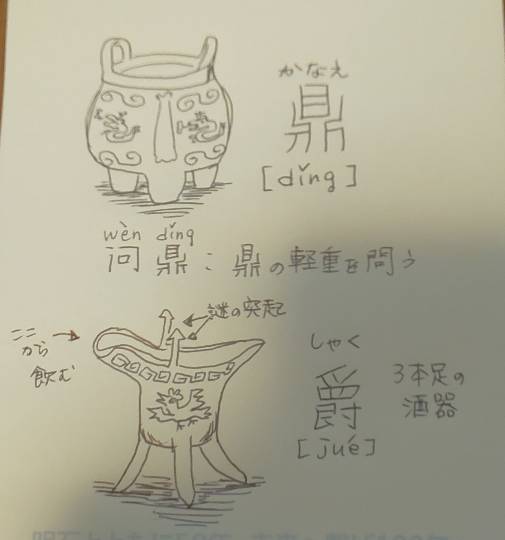 かなえ
鼎
[dǐng]
wèn dǐng
问 鼎 : 鼎の軽重を問う
謎の突起
ここ
から
飲む
しゃく
爵
[jué]
3本足の
酒器